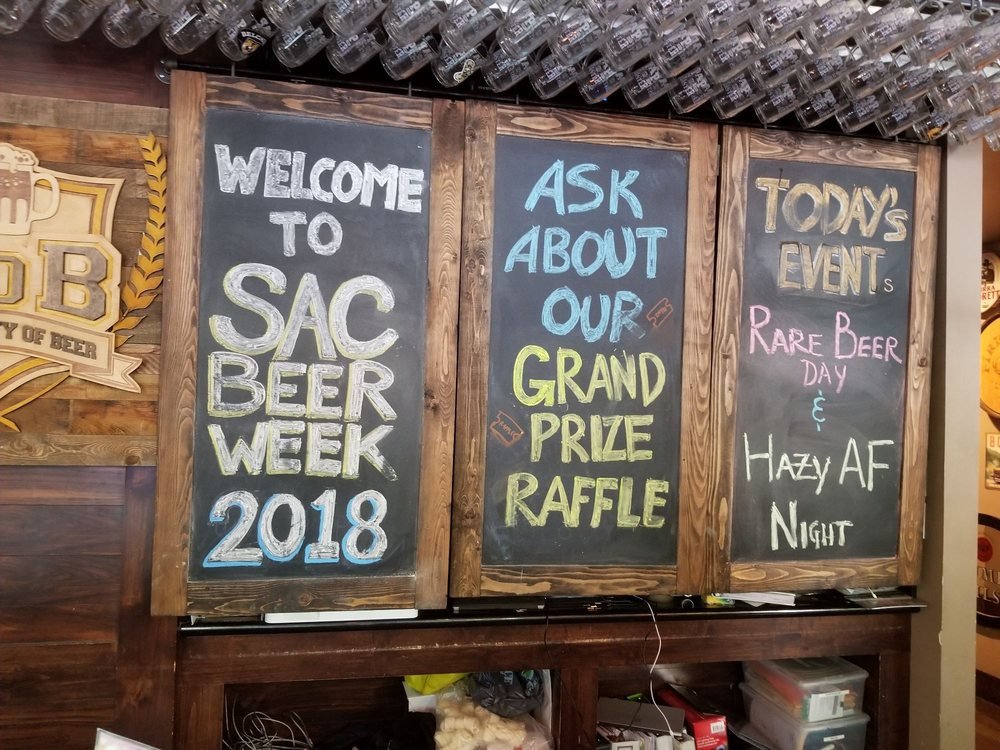 WELCOME
TO
SAC
BEER
WEEK
2018
ASK
ABOUT
OUR
GRAND
PRIZE
RAFFLE
TODAY'S
EVENTs
RARE BEER
DAY
&
HAZY AF
NIGHT
B
TY OF BEER